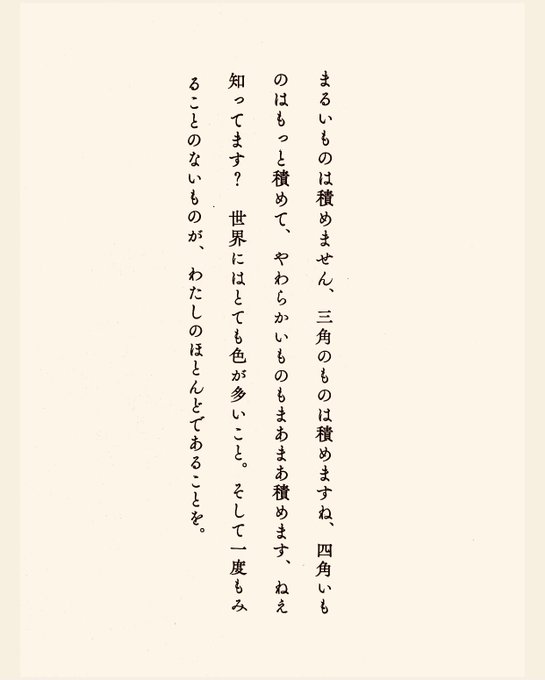 まるいものは積めません、三角のものは積めますね、四角いも
のはもっと積めて、やわらかいものもまあまあ積めます、ねえ
知ってます？　世界にはとても色が多いこと。そして一度もみ
ることのないものが、わたしのほとんどであることを。